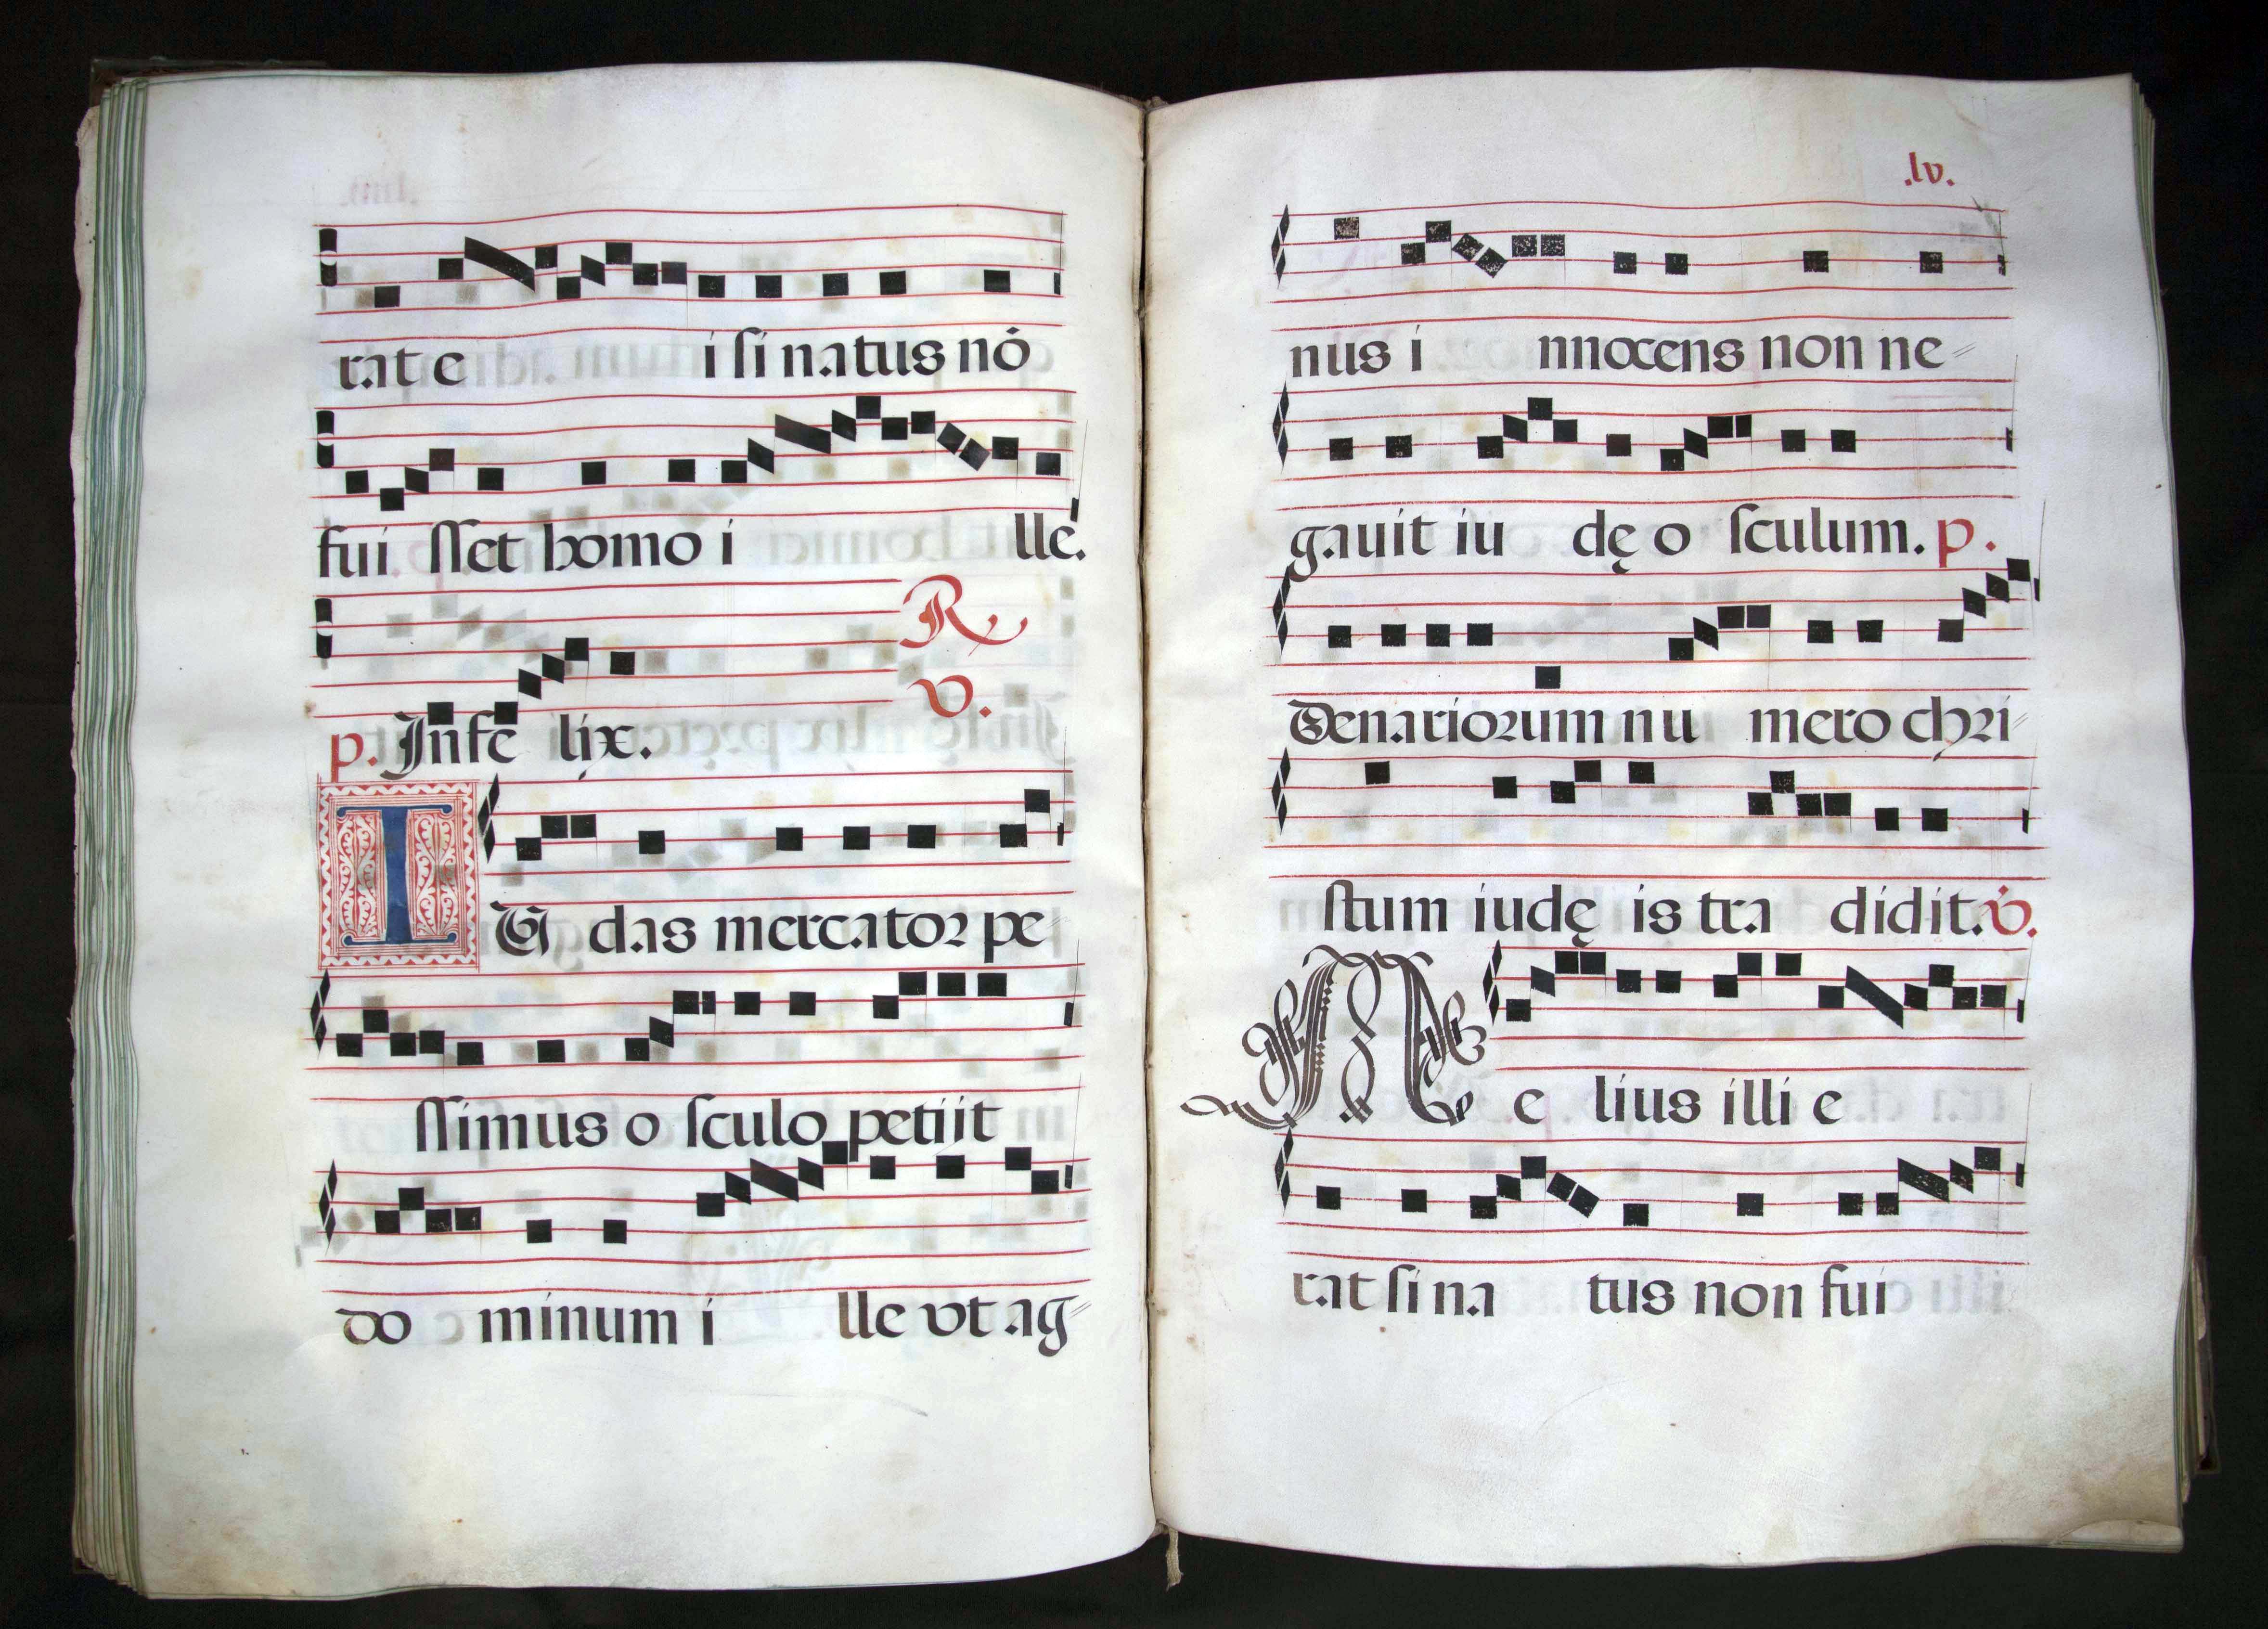 rat e i si natus nō
fui sset homo i lle.
R
V.
p. Infe lix.
IU das mercator pe
ssimus o sculo petiit
do minum i lle vt ag
.lv.
nus i nnocens non ne
gauit iu dę o sculum. p.
Denariorum nu mero chri
stum iudę is tra didit. v.
Me lius illi e
rat si na tus non fui